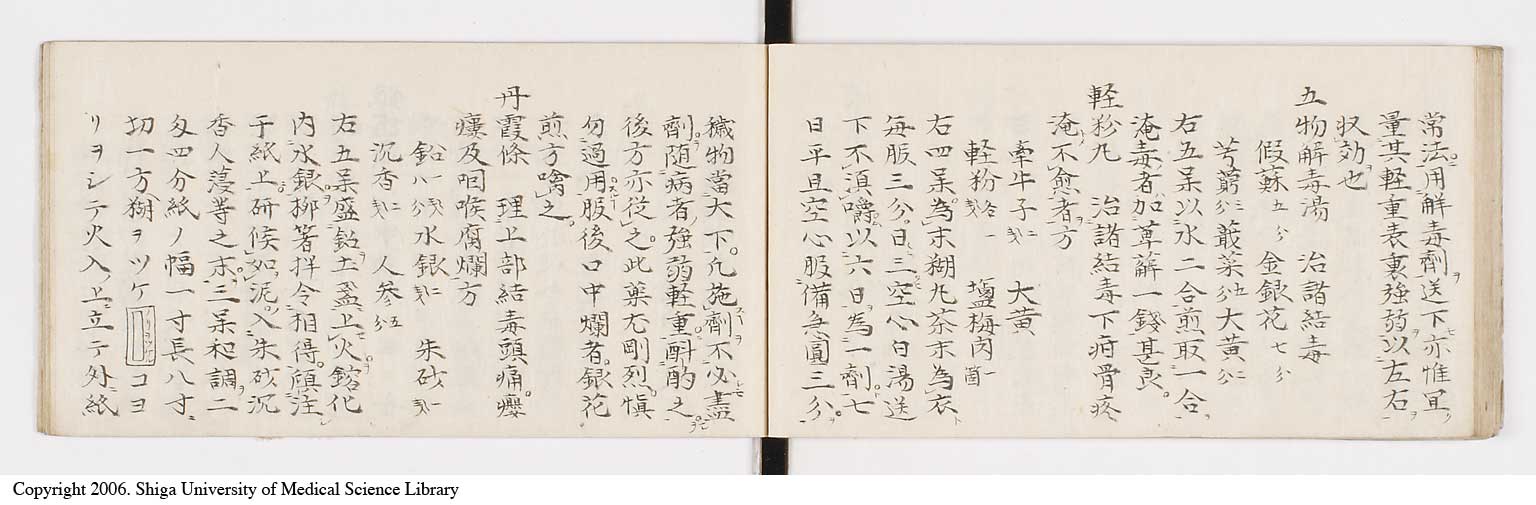 常法用解毒劑ヲ送下亦惟宜ノ
量其軽重表裏強弱以左右ヲ
収効也
五物解毒湯 治諸結毒
假蘇五分 金銀花七分
芎藭三分 蕺菜五分 大黄二分
右五味以水二合煎取一合
淹毒者加萆薢一錢甚良
軽粉丸 治諸結毒下疳骨疼
淹不愈者方
牽牛子二戔 大黄
軽粉各一戔 塩梅肉一箇
右四味為末糊丸茶末為衣
毎服三分日三空心白湯送
下不須嚼以六日為一劑七
日平旦空心服備急圓三分
穢物當大下凡施劑不必盡
劑随病者強弱軽重斟酌之
後方亦従之此薬尤剛烈慎
勿過用服後口中爛者銀花
煎方噙之
丹霞條 理上部結毒頭痛癭
瘻及咽喉腐爛方
鉛一戔八分 水銀二戔 朱砂一戔
沉香二戔 人参五分
右五味盛鉛土盞上火鎔化
内水銀柳箸拌令相得傾注
于紙上研候如泥入朱砂沉
香人蓡等之末三味和調二
匁四分紙ノ幅一寸長八寸ニ
切一方糊ヲツケ コヨ
リヲシテ火入ニ立テ外ニ紙